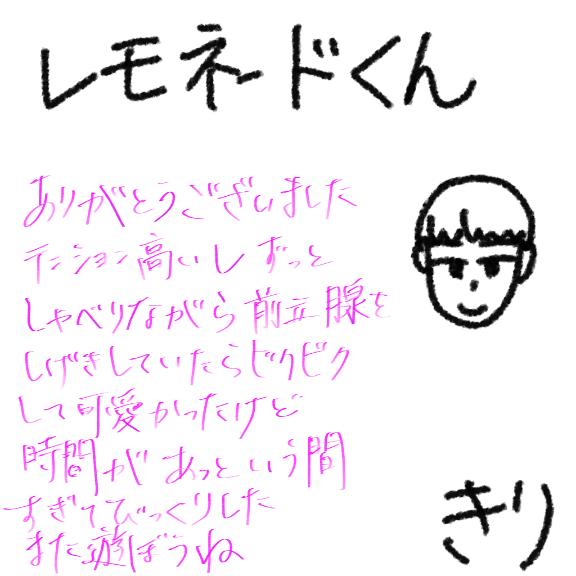 レモネードくん
ありがとうございました
テンション高いし ずっと
しゃべりながら前立腺を
しげきしていたらビクビク
して可愛かったけど
時間が あっという間
すぎてびっくりした
また遊ぼうね
きり